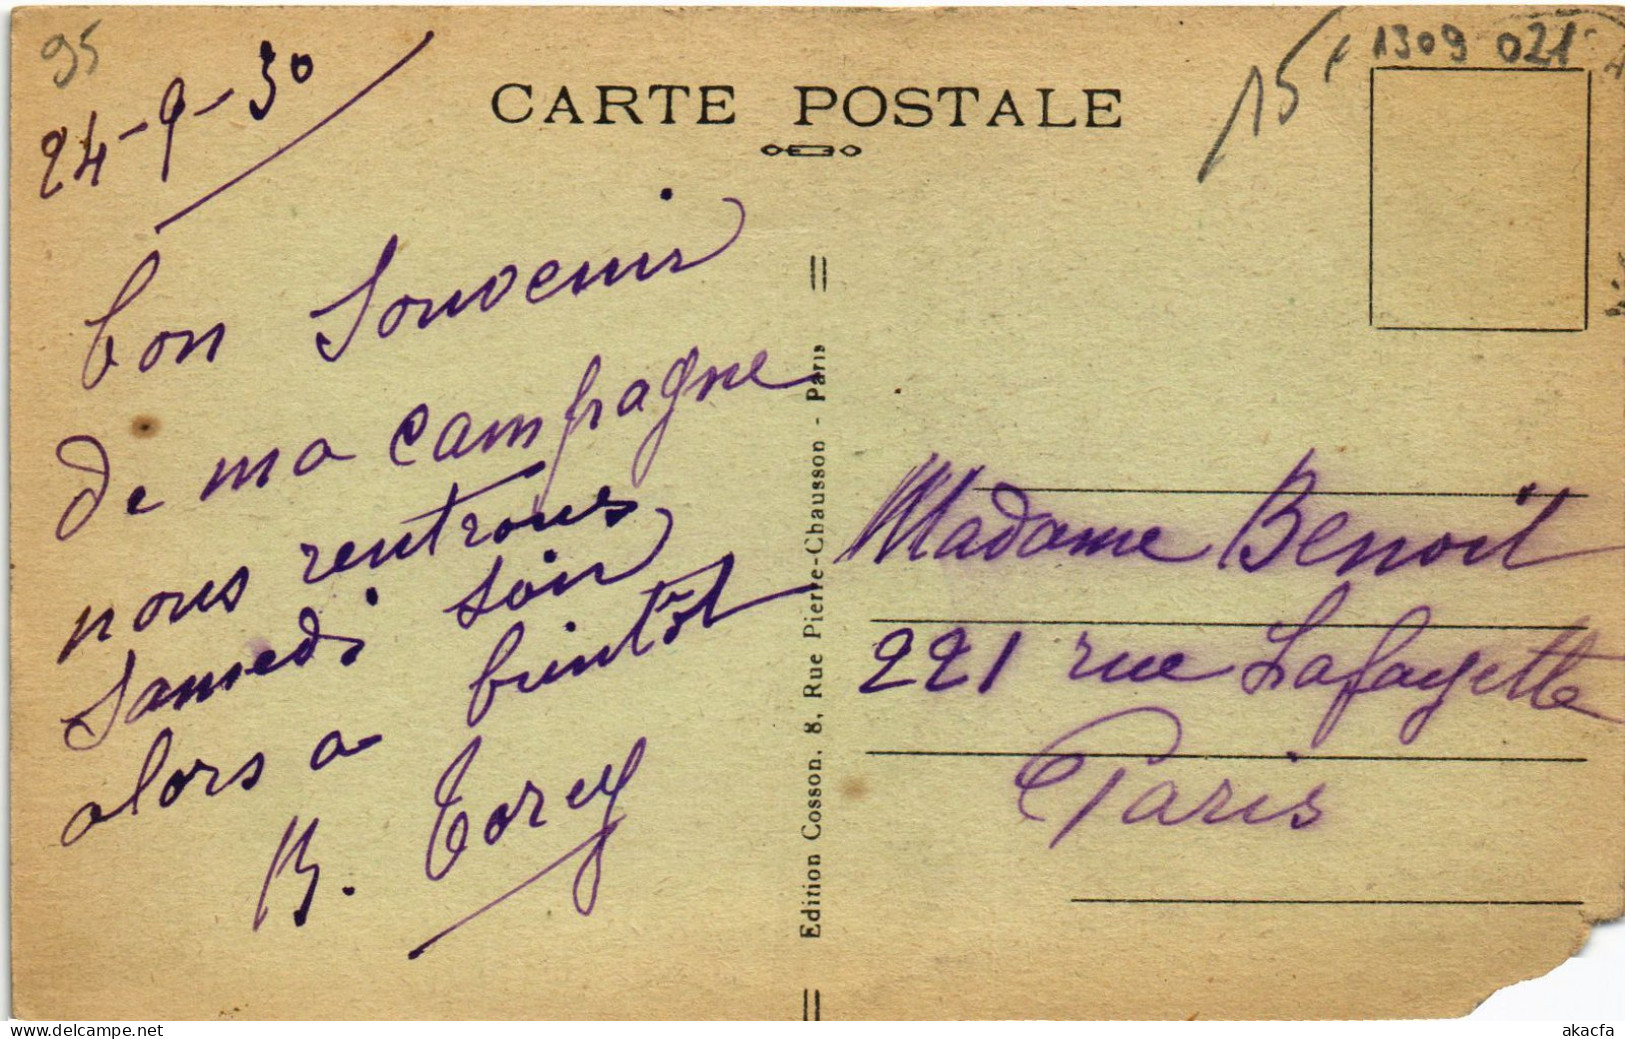 95
24-9-30
CARTE POSTALE
15
1309 021
bon souvenir
de ma campagne
nous rentrons
samedi soir
alors a bientôt
B. Torcy
Edition Cosson. 8, Rue Pierre-Chausson - Paris
Madame Benoit
221 rue Lafayette
Paris
www.delcampe.net
akacfa